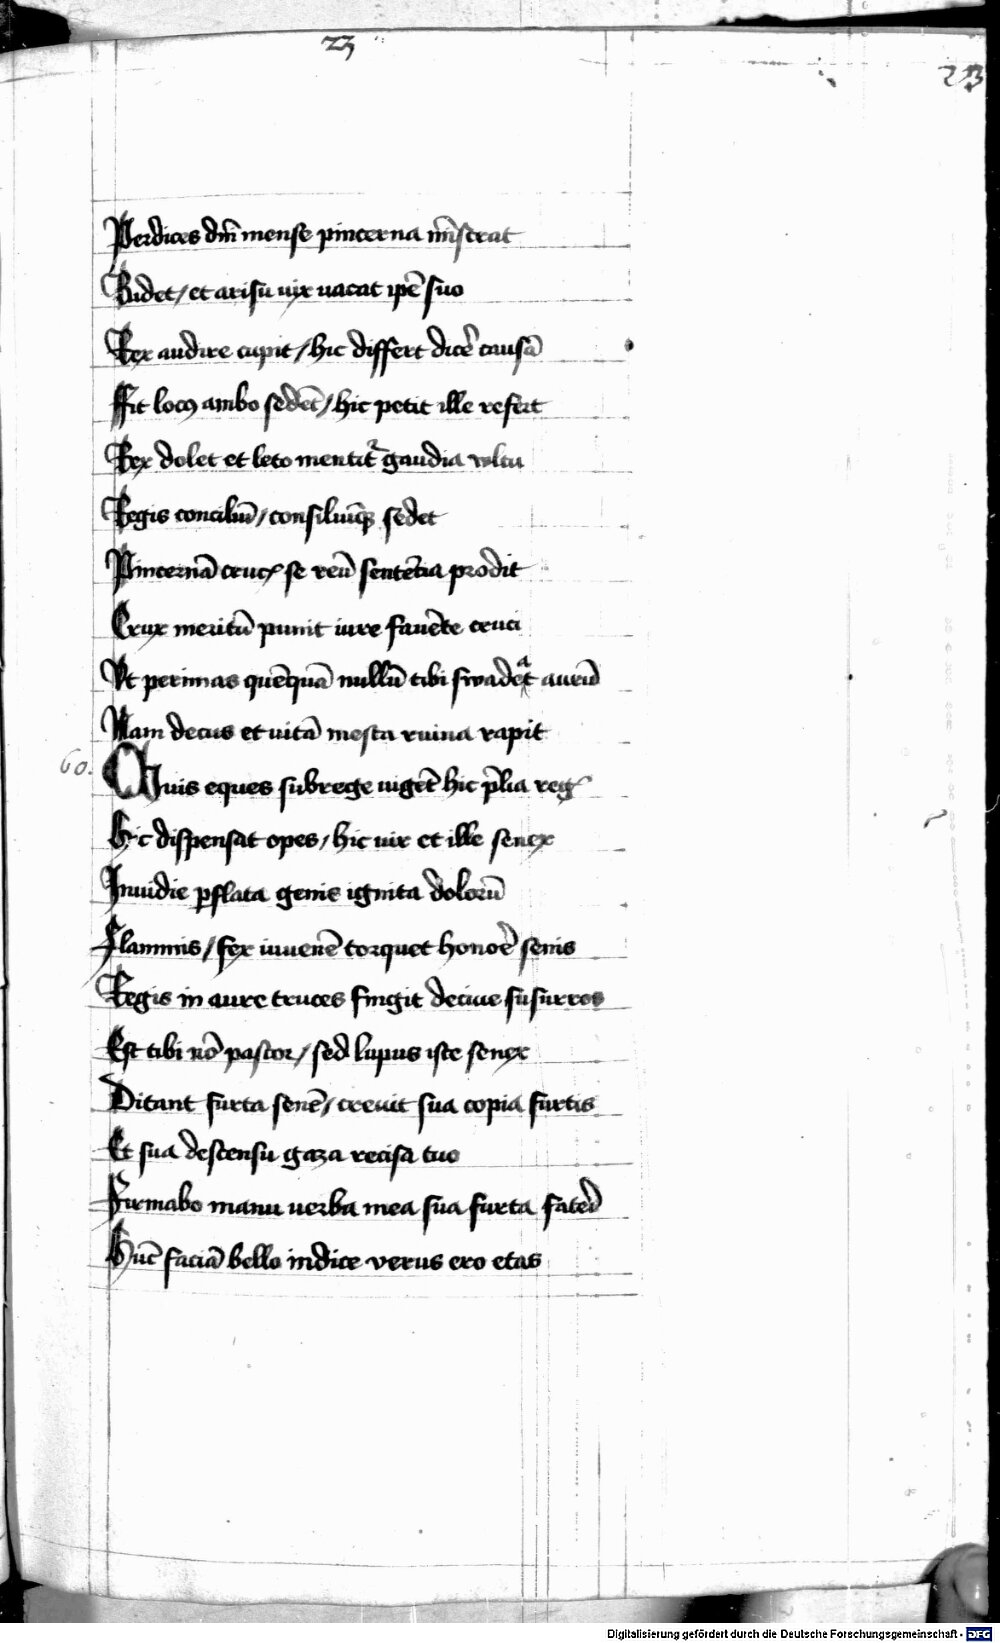 23
23
Perdices dm̄ mense pincerna mīstrat
Ridet / et arisu uix uacat ipē suo
Rex audire cupit / hic differt dicē causā
Fit locꝯ ambo sedēt / hic petit ille refert
Rex dolet et leto mentit᷑ gaudia voltu
Regis conciliū / consiliūqꝫ sedet
Pincernā cruc se reū sentēcia prodit
Crux meritū punit iure fauēte cruci
Ut perimas quēquā nullū tibi swadet aurū
Nam decus et uitā mesta ruina rapit
60. Ciuis eques subrege uigēt hic p̄lia reg
Hic dispensat opes / hic uir et ille senex
Inuidie ꝑflata genis ignita dolorū
Flammis / fex iuuenē torquet honoē senis
Regis in aure truces fingit deciue susurros
Est tibi nō pastor / sed lupus iste senex
Ditant furta senē / creuit sua copia furtis
Et sua descensu gaza recisa tuo
Firmabo manu uerba mea sua furta fateri
Hūc faciā bello indice verus ero etas
Digitalisierung gefördert durch die Deutsche Forschungsgemeinschaft - DFG